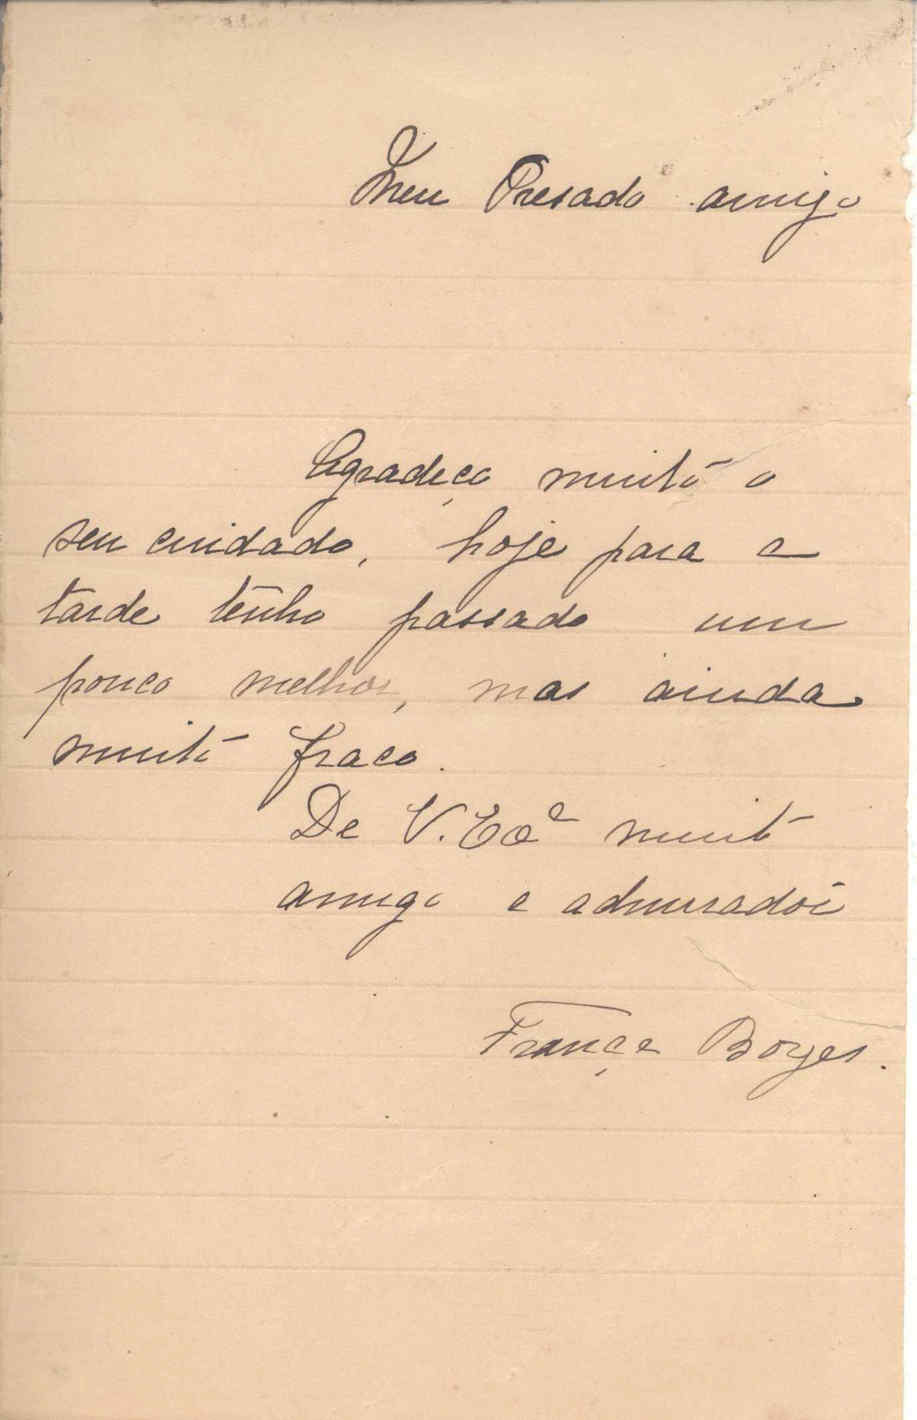 Meu Presado amigo
Agradeço muito o
seu cuidado, hoje para a
tarde tenho passado um
pouco melhor, mas ainda
muito fraco.
De V. Exª muito
amigo e admirador
França Borges.